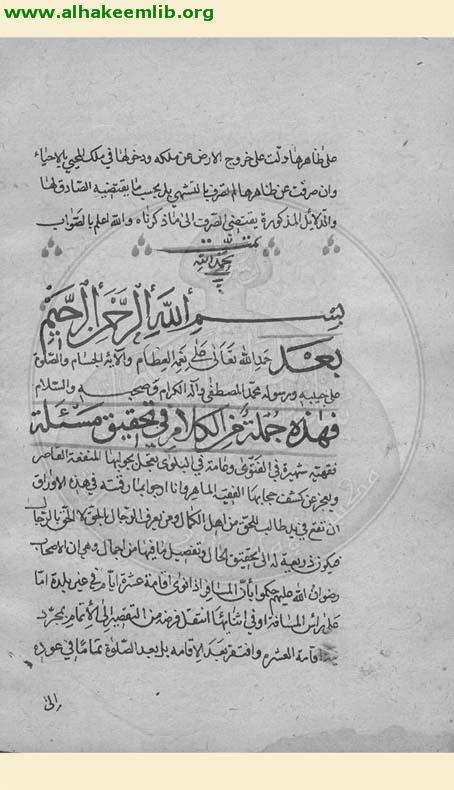 www.alhakeemlib.org
على ظاهرها دلت على خروج الارض عن ملكه ودخولها في ملك المحيي بالاحياء
وان صرفت عن ظاهرها لم تصرف بالتشهي بل بحسب ما يقتضيه الصادق لها
والدلائل المذكورة يقتضي الصرف الى ما ذكرناه والله اعلم بالصواب
تمت
بحمد الله
بسم الله الرحمن الرحيم
بعد حمد الله تعالى على نعمه العظام والآئه الجسام والصلوة
على حبيبه ورسوله محمد المصطفى وآله الكرام وصحبه والسلام
فهذه جملة من الكلام في تحقيق مسئلة
فقهية شهيرة في الفتوى وعامة في البلوى يعجل بجوابها المتفقه القاصر
ويعجز عن كشف حجابها الفقيه الماهر وانا ارجو ايما رقته في هذه الاوراق
ان تقع في يد طالب للحق من اهل الكمال ومن يعرف الرجال بالحق لا الحق بالرجال
فيكون ذريعة له الى تحقيق الحال وتفصيل ما فيها من اجمال وهي ان الاصحاب
رضوان الله عليهم حكموا بان المسافر اذا نوى اقامة عشرة ايام في غير بلده اما
على راس المسافة او في اثنائها انتقل فرضه من التقصير الى الاتمام بمجرد
اقامة العشرة وافتقر بعد الاقامه بل بعد الصلوة تماما في عوده
الى